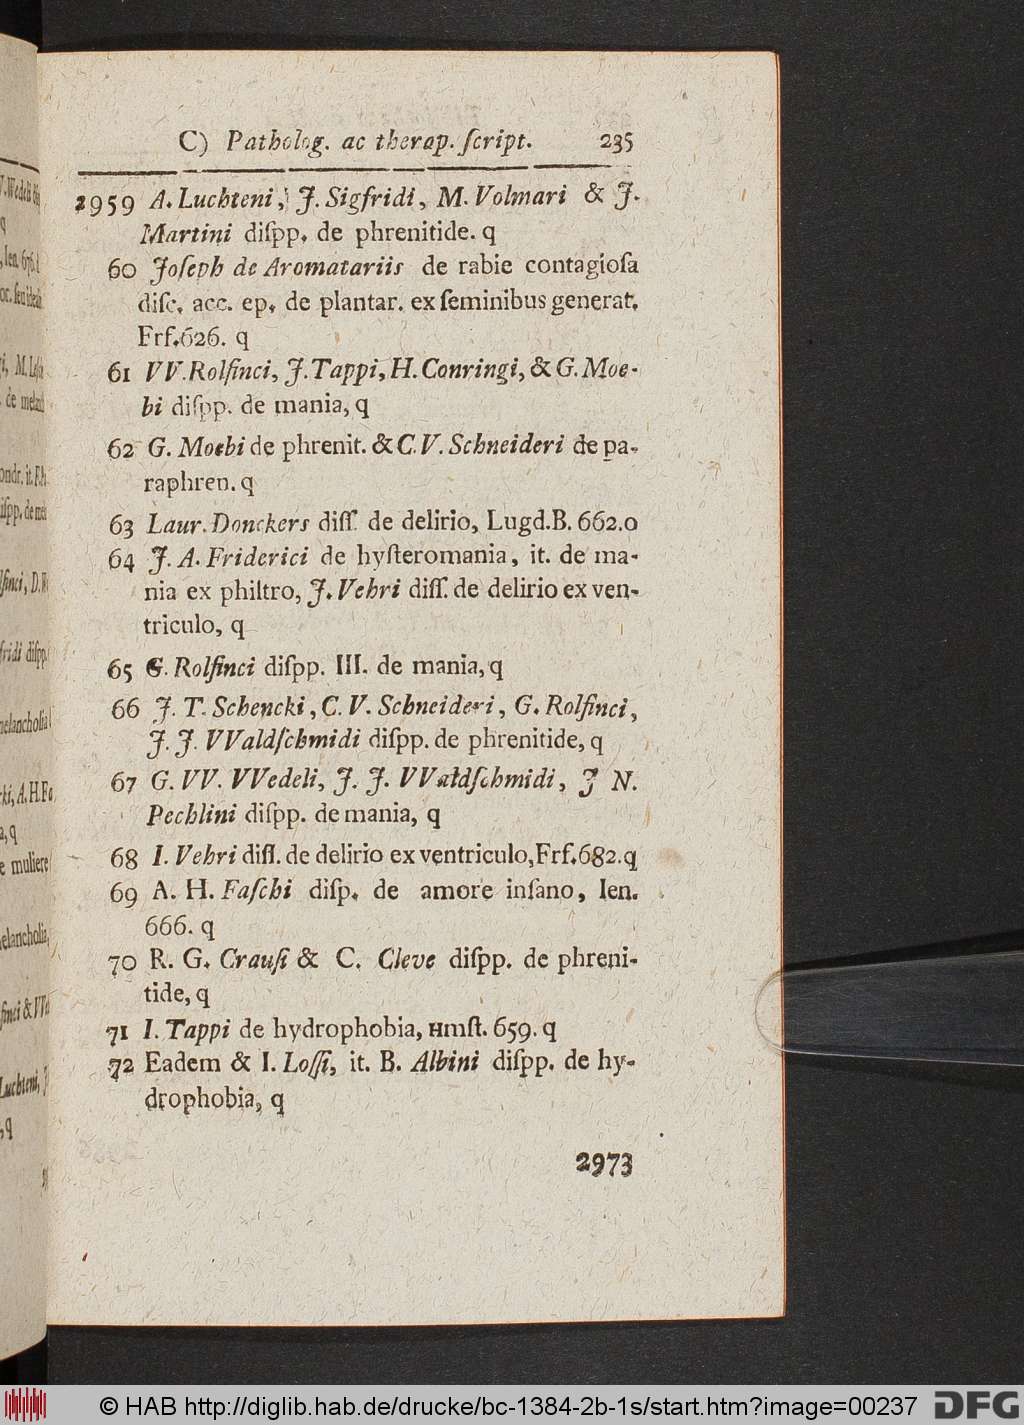 C) Patholog. ac therap. ſcript. 235
2959 A. Luchteni, J. Sigfridi, M. Volmari & J.
Martini diſpp. de phrenitide. q
60 Joſeph de Aromatariis de rabie contagioſa
diſc. acc. ep. de plantar. ex ſeminibus generat.
Frf. 626. q
61 VV. Rolfinci, J. Tappi, H. Conringi, & G. Moe-
bi diſpp. de mania, q
62 G. Moebi de phrenit. & C. V. Schneideri de pa-
raphren. q
63 Laur. Donckers diſſ. de delirio, Lugd. B. 662. o
64 J. A. Friderici de hyſteromania, it. de ma-
nia ex philtro, J. Vehri diſſ. de delirio ex ven-
triculo, q
65 G. Rolfinci diſpp. III. de mania, q
66 J. T. Schencki, C. V. Schneideri, G. Rolfinci,
J. J. VValdſchmidi diſpp. de phrenitide, q
67 G. VV. VVedeli, J. J. VValdſchmidi, J N.
Pechlini diſpp. de mania, q
68 I. Vehri diſſ. de delirio ex ventriculo, Frf. 682. q
69 A. H. Faſchi diſp. de amore inſano, Ien.
666. q
70 R. G. Crauſi & C. Cleve diſpp. de phreni-
tide, q
71 I. Tappi de hydrophobia, Hmſt. 659. q
72 Eadem & I. Loſſi, it. B. Albini diſpp. de hy-
drophobia, q
2973
© HAB http://diglib.hab.de/drucke/bc-1384-2b-1s/start.htm?image=00237 DFG